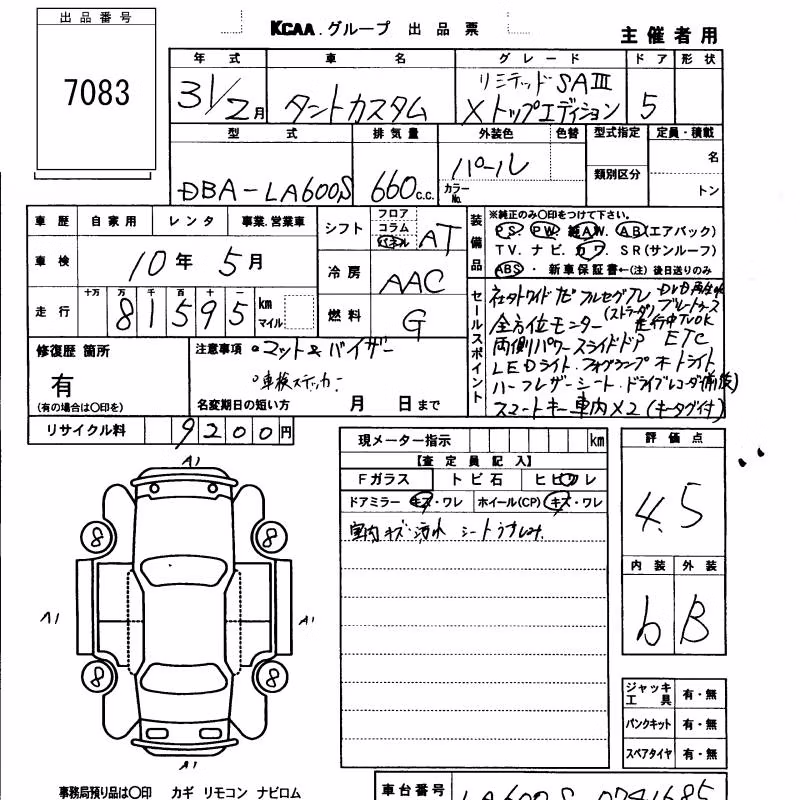 出品番号
7083
KCAA.グループ 出品票
主催者用
年式 車名 グレード ドア 形状
31/2月 タントカスタム リミテッドSAⅢ
Xトップエディション 5
型式 排気量 外装色 色替 型式指定 定員・積載
DBA-LA600S 660c.c. パール カラーNo. 類別区分 名
トン
車歴 自家用 レンタ 事業.営業車
車検 10年 5月
走行 十万 万 千 百 十 一
81595 km
マイル
シフト フロア コラム パネル AT
冷房 AAC
燃料 G
装備品
※純正のみ〇印をつけて下さい。
PS. PW. 純AW. AB(エアバック)
TV. ナビ. カワ. SR(サンルーフ)
ABS ・ 新車保証書←(注) 後日送りのみ
セールスポイント
社外ワイドナビ フルセグTV DVD再生
(ストラーダ) ブルートゥース
全方位モニター 走行中TVOK
両側パワースライドドア ETC
LEDライト.フォグランプ オートライト
ハーフレザーシート.ドライブレコーダ(前後)
スマートキー車内×2(キータグ付)
修復歴 箇所
有
(有の場合は〇印を)
注意事項 ・マット&バイザー
・車検ステッカー
名変期日の短い方 月 日まで
リサイクル料 9200円
現メーター指示 km
【査定員記入】
Fガラス トビ石 ヒビワレ
ドアミラー キズ・ワレ ホイール(CP) キズ・ワレ
室内キズ.汚れ シートうすしみ
評価点
4.5
内装 外装
b B
A1
8 8
A1 A1
8 8
A1
ジャッキ工具 有・無
パンクキット 有・無
スペアタイヤ 有・無
事務局預り品は〇印 カギ リモコン ナビロム
車台番号 LA600S 0741685